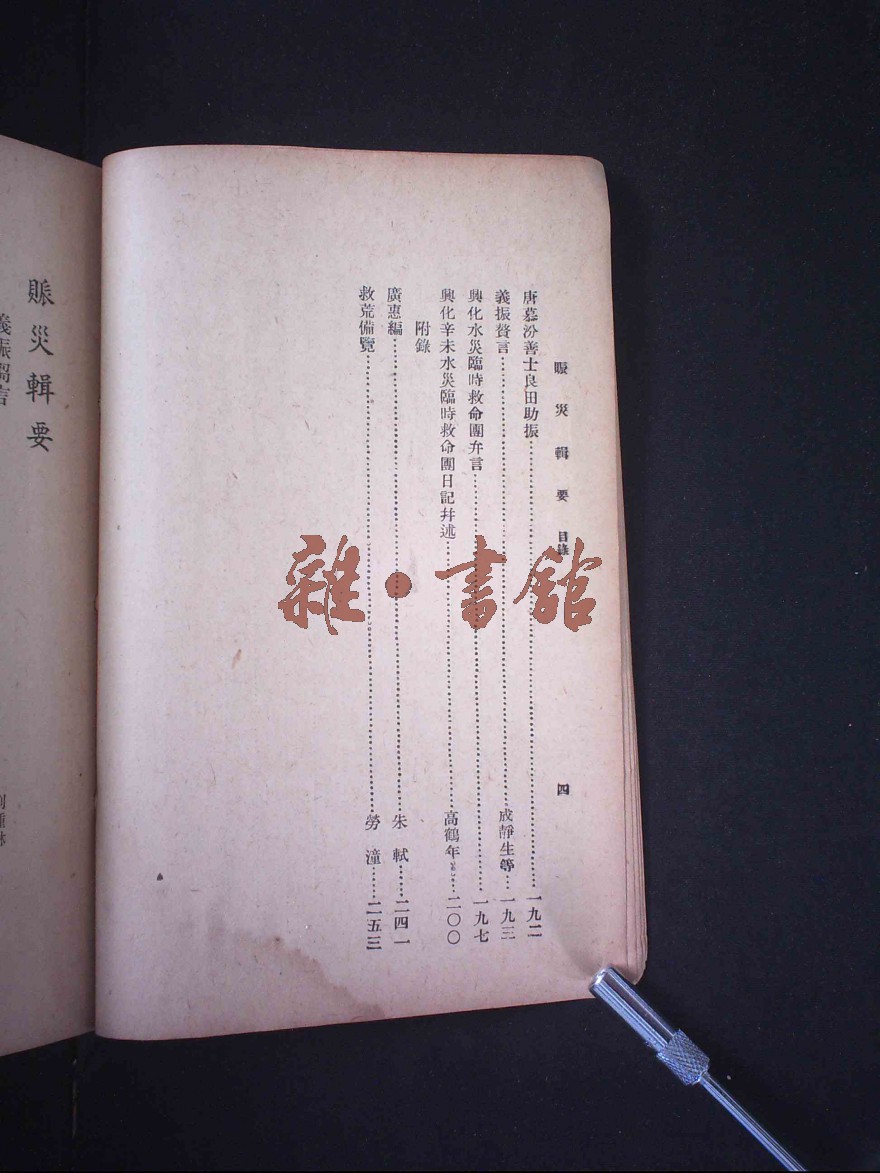 賑災輯要 目錄 四
唐慕汾善士良田助振……一九二
義振贅言……成靜生等……一九三
興化水災臨時救命團弁言……一九七
興化辛未水災臨時救命團日記幷述……高鶴年……二〇〇
附錄
廣惠編……朱軾……二四一
救荒備覽……勞潼……二五三
賑災輯要
雜·書館